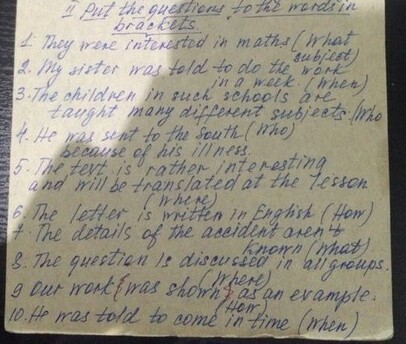 II Put the questions to the words in
brackets.
1. They were interested in maths (What
subject)
2. My sister was told to do the work
in a week. (When)
3. The children in such schools are
taught many different subjects. (Who
4. He was sent to the South (Who)
because of his illness.
5. The text is rather interesting
and will be translated at the lesson
(Where)
6. The letter is written in English (How)
7. The details of the accident aren't
known (What)
8. The question is discussed in all groups.
(Where)
9 Our work (was shown) as an example.
(How)
10. He was told to come in time (When)